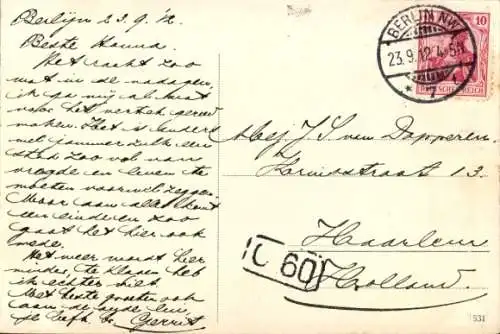 Berlijn 23.9.'12.
Beste Hanna.
Het raakt zoo
wat in de nadagen,
ik ga mij al wat
voor het vertrek gereed
maken. Het is anders
wel jammer zulk een
stad zoo vol van
vreugde en leven te
moeten vaarwel zeggen.
Maar aan alles komt
een einde en zoo
gaat het hier ook
mede.
Het weer wordt hier
minder, te klagen heb
ik echter niet.
Met beste groeten ook
aan de
je Gerrit
BERLIN NW
23.9.12.4-5
* 7
10
DEUTSCHES REICH
Mej J. S. van Dapperen.
Kornisstraat 13.
Haarlem
Holland.
C 60
531